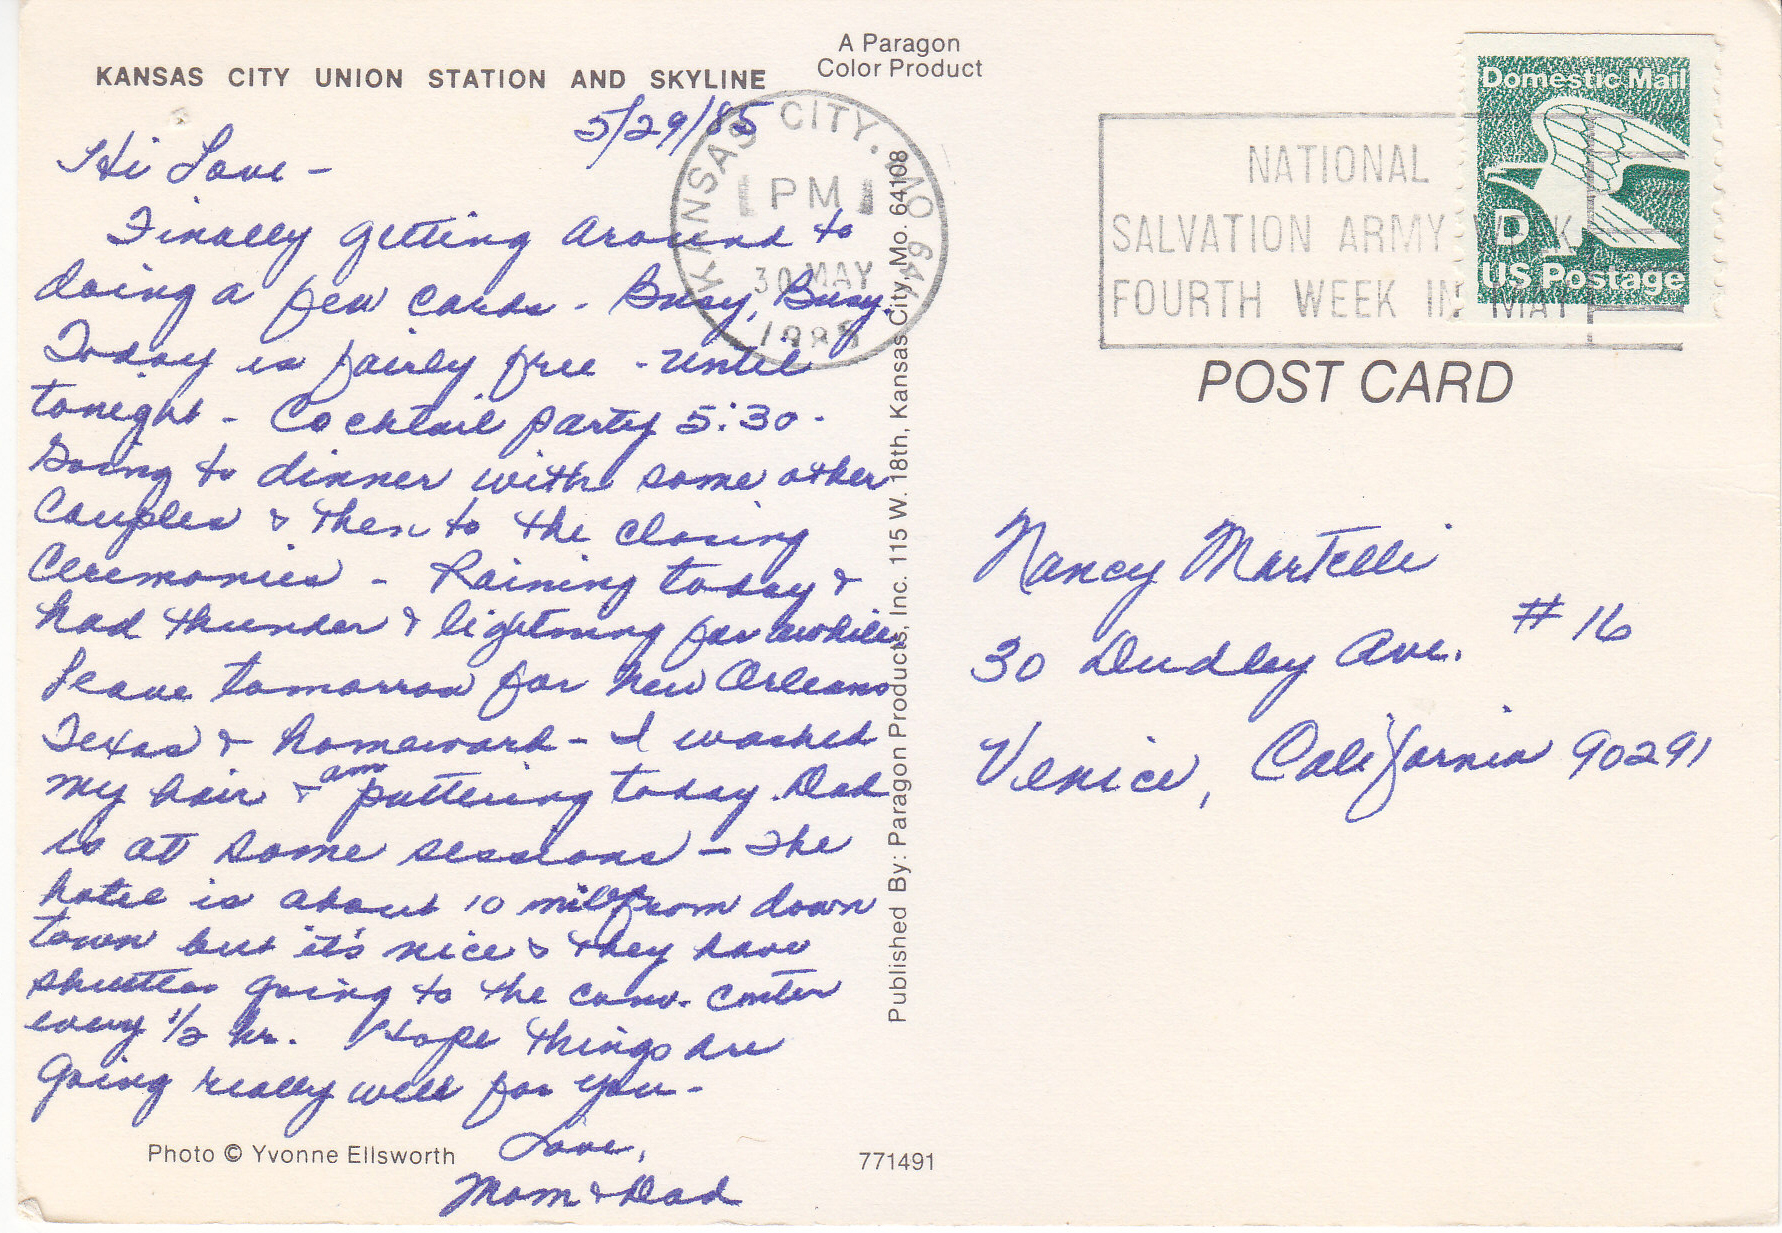 KANSAS CITY UNION STATION AND SKYLINE
A Paragon
Color Product
5/29/85
Hi Love -
Finally getting around to
doing a few cards - Busy, Busy.
Today is fairly free - until
tonight - Cocktail party 5:30 -
Going to dinner with some other
Couples & then to the closing
Ceremonies - Raining today &
had thunder & lightning for awhile.
Leave tomorrow for New Orleans
Texas & homeward - I washed
my hair & am puttering today. Dad
is at some sessions - The
hotel is about 10 miles from down
town but it's nice & they have
shuttles going to the conv. center
every 1/2 hr. Hope things are
going really well for you -
Love,
Mom & Dad
Photo © Yvonne Ellsworth
771491
Published By: Paragon Products, Inc. 115 W. 18th, Kansas City, Mo. 64108
KANSAS CITY, MO 641
PM
30 MAY
1985
NATIONAL
SALVATION ARMY WEEK
FOURTH WEEK IN MAY
Domestic Mail
D
US Postage
POST CARD
Nancy Martelli
30 Dudley Ave. # 16
Venice, California 90291